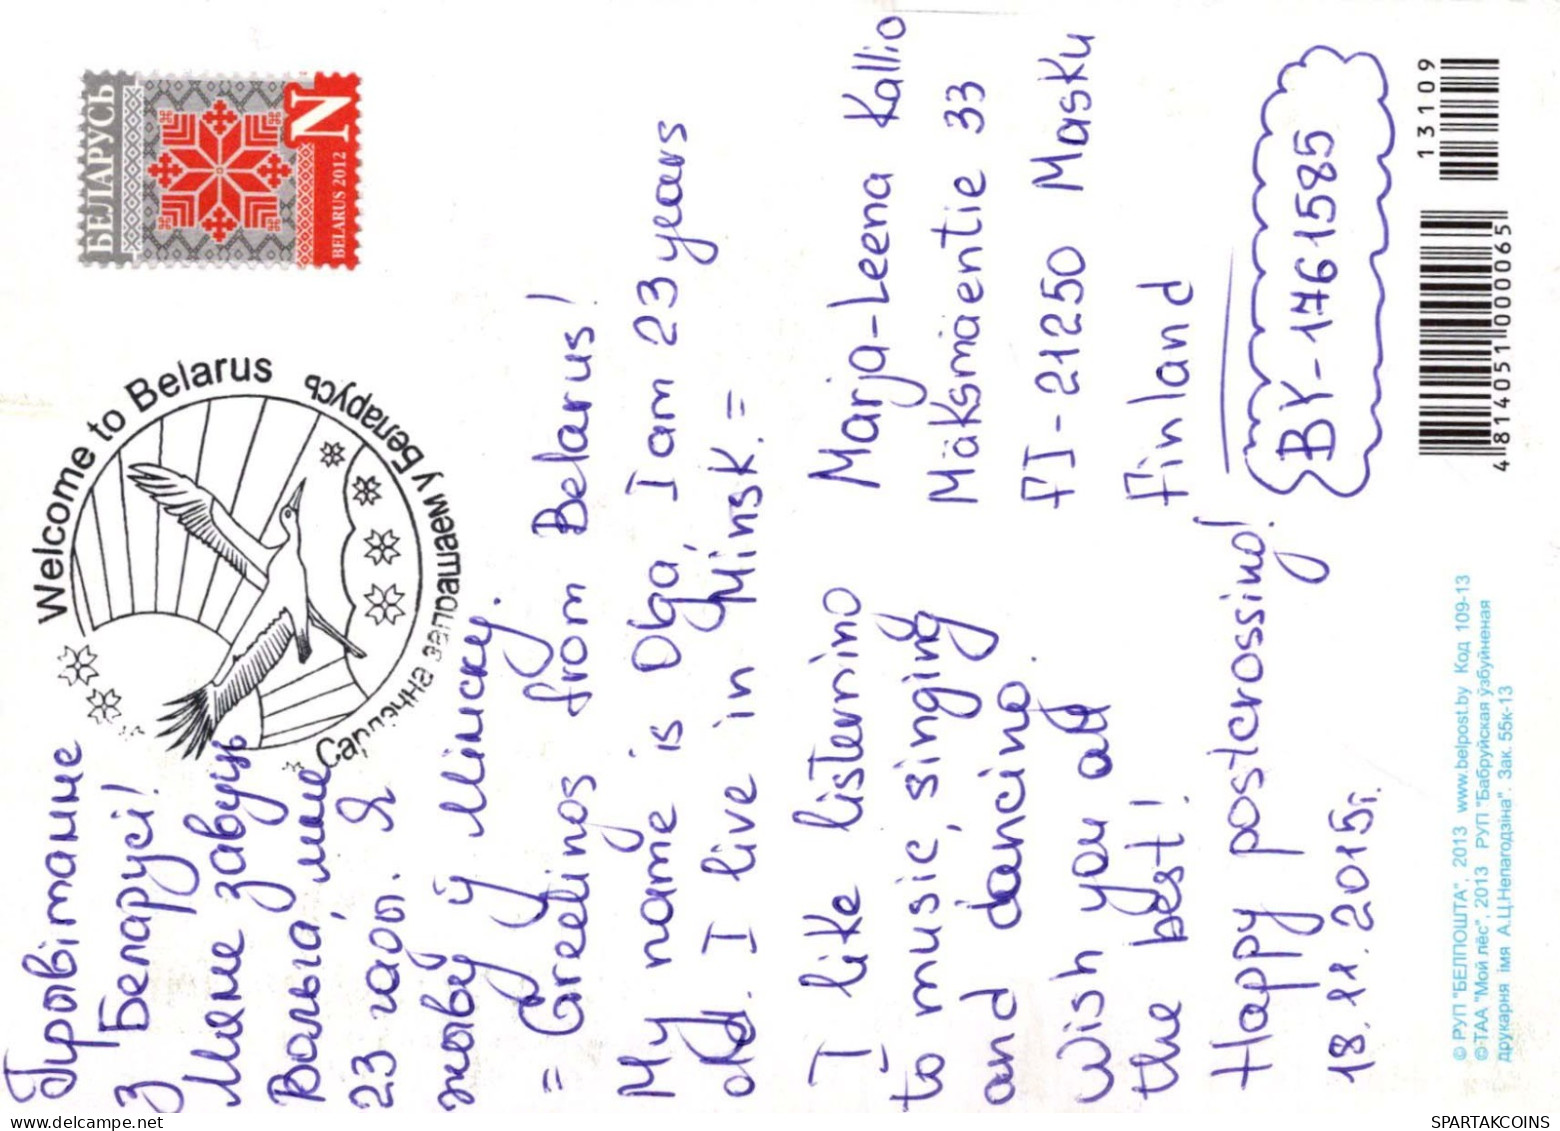 Прывітанне
з Беларусі!
Мяне завуць
Вольга, мне
23 гады. Я
жыву ў Мінску.
= Greetings from Belarus!
My name is Olga, I am 23 years
old. I live in Minsk. =
I like listerning
to music, singing
and dancing.
Wish you all
the best!
Happy postcrossing!
18.11.2015г.
БЕЛАРУСЬ
N
BELARUS 2012
Welcome to Belarus
Сардэчна запрашаем у Беларусь
Marja-Leena Kallio
Mäksmäentie 33
FI-21250 Masku
Finland
BY-1761585
13109
4 814051 000065
© РУП "БЕЛПОШТА", 2013 www.belpost.by Код 109-13
© ТАА "Мой лёс", 2013 РУП "Бабруйская ўзбуйненая
друкарня імя А.Ц.Непагодзіна". Зак. 55к-13
SPARTAKCOINS